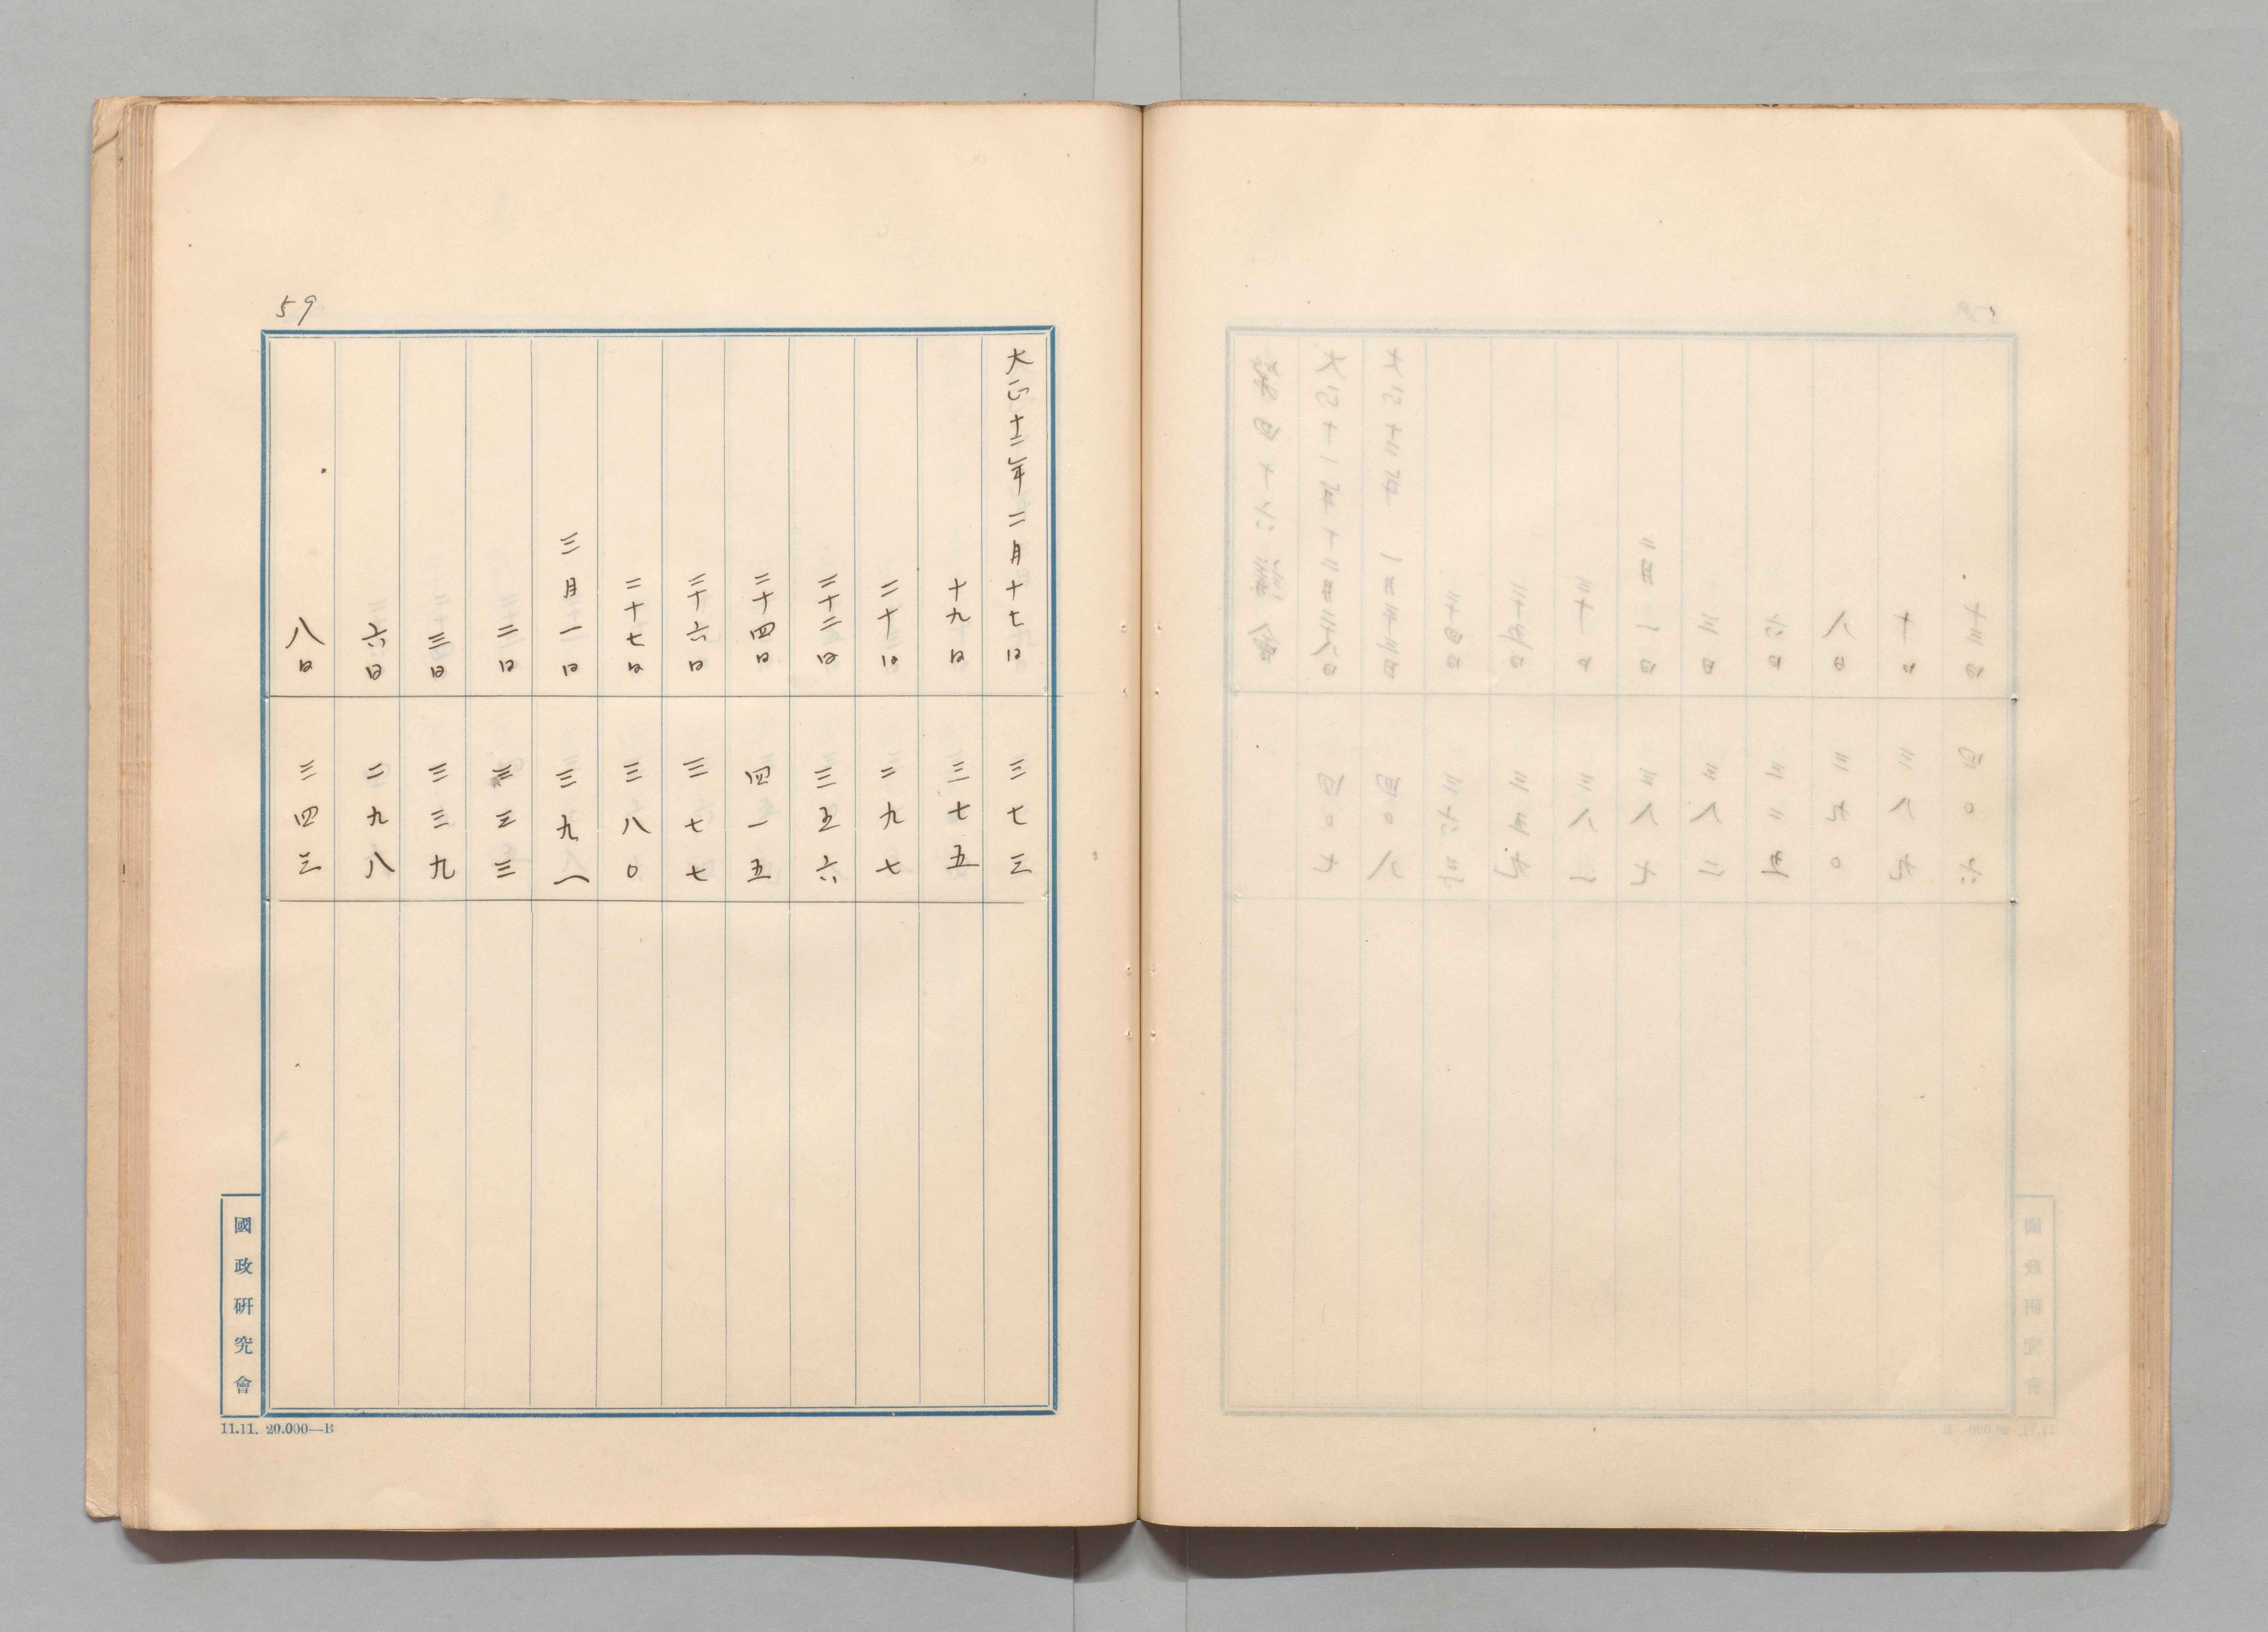 59
大正十二年二月十七日 三七三
十九日 三七五
二十日 二九七
二十二日 三五六
二十四日 四一五
二十六日 三七七
二十七日 三八〇
三月一日 三九一
二日 三三三
三日 三三九
六日 二九八
八日 三四三
國政研究會
11.11. 20.000—B